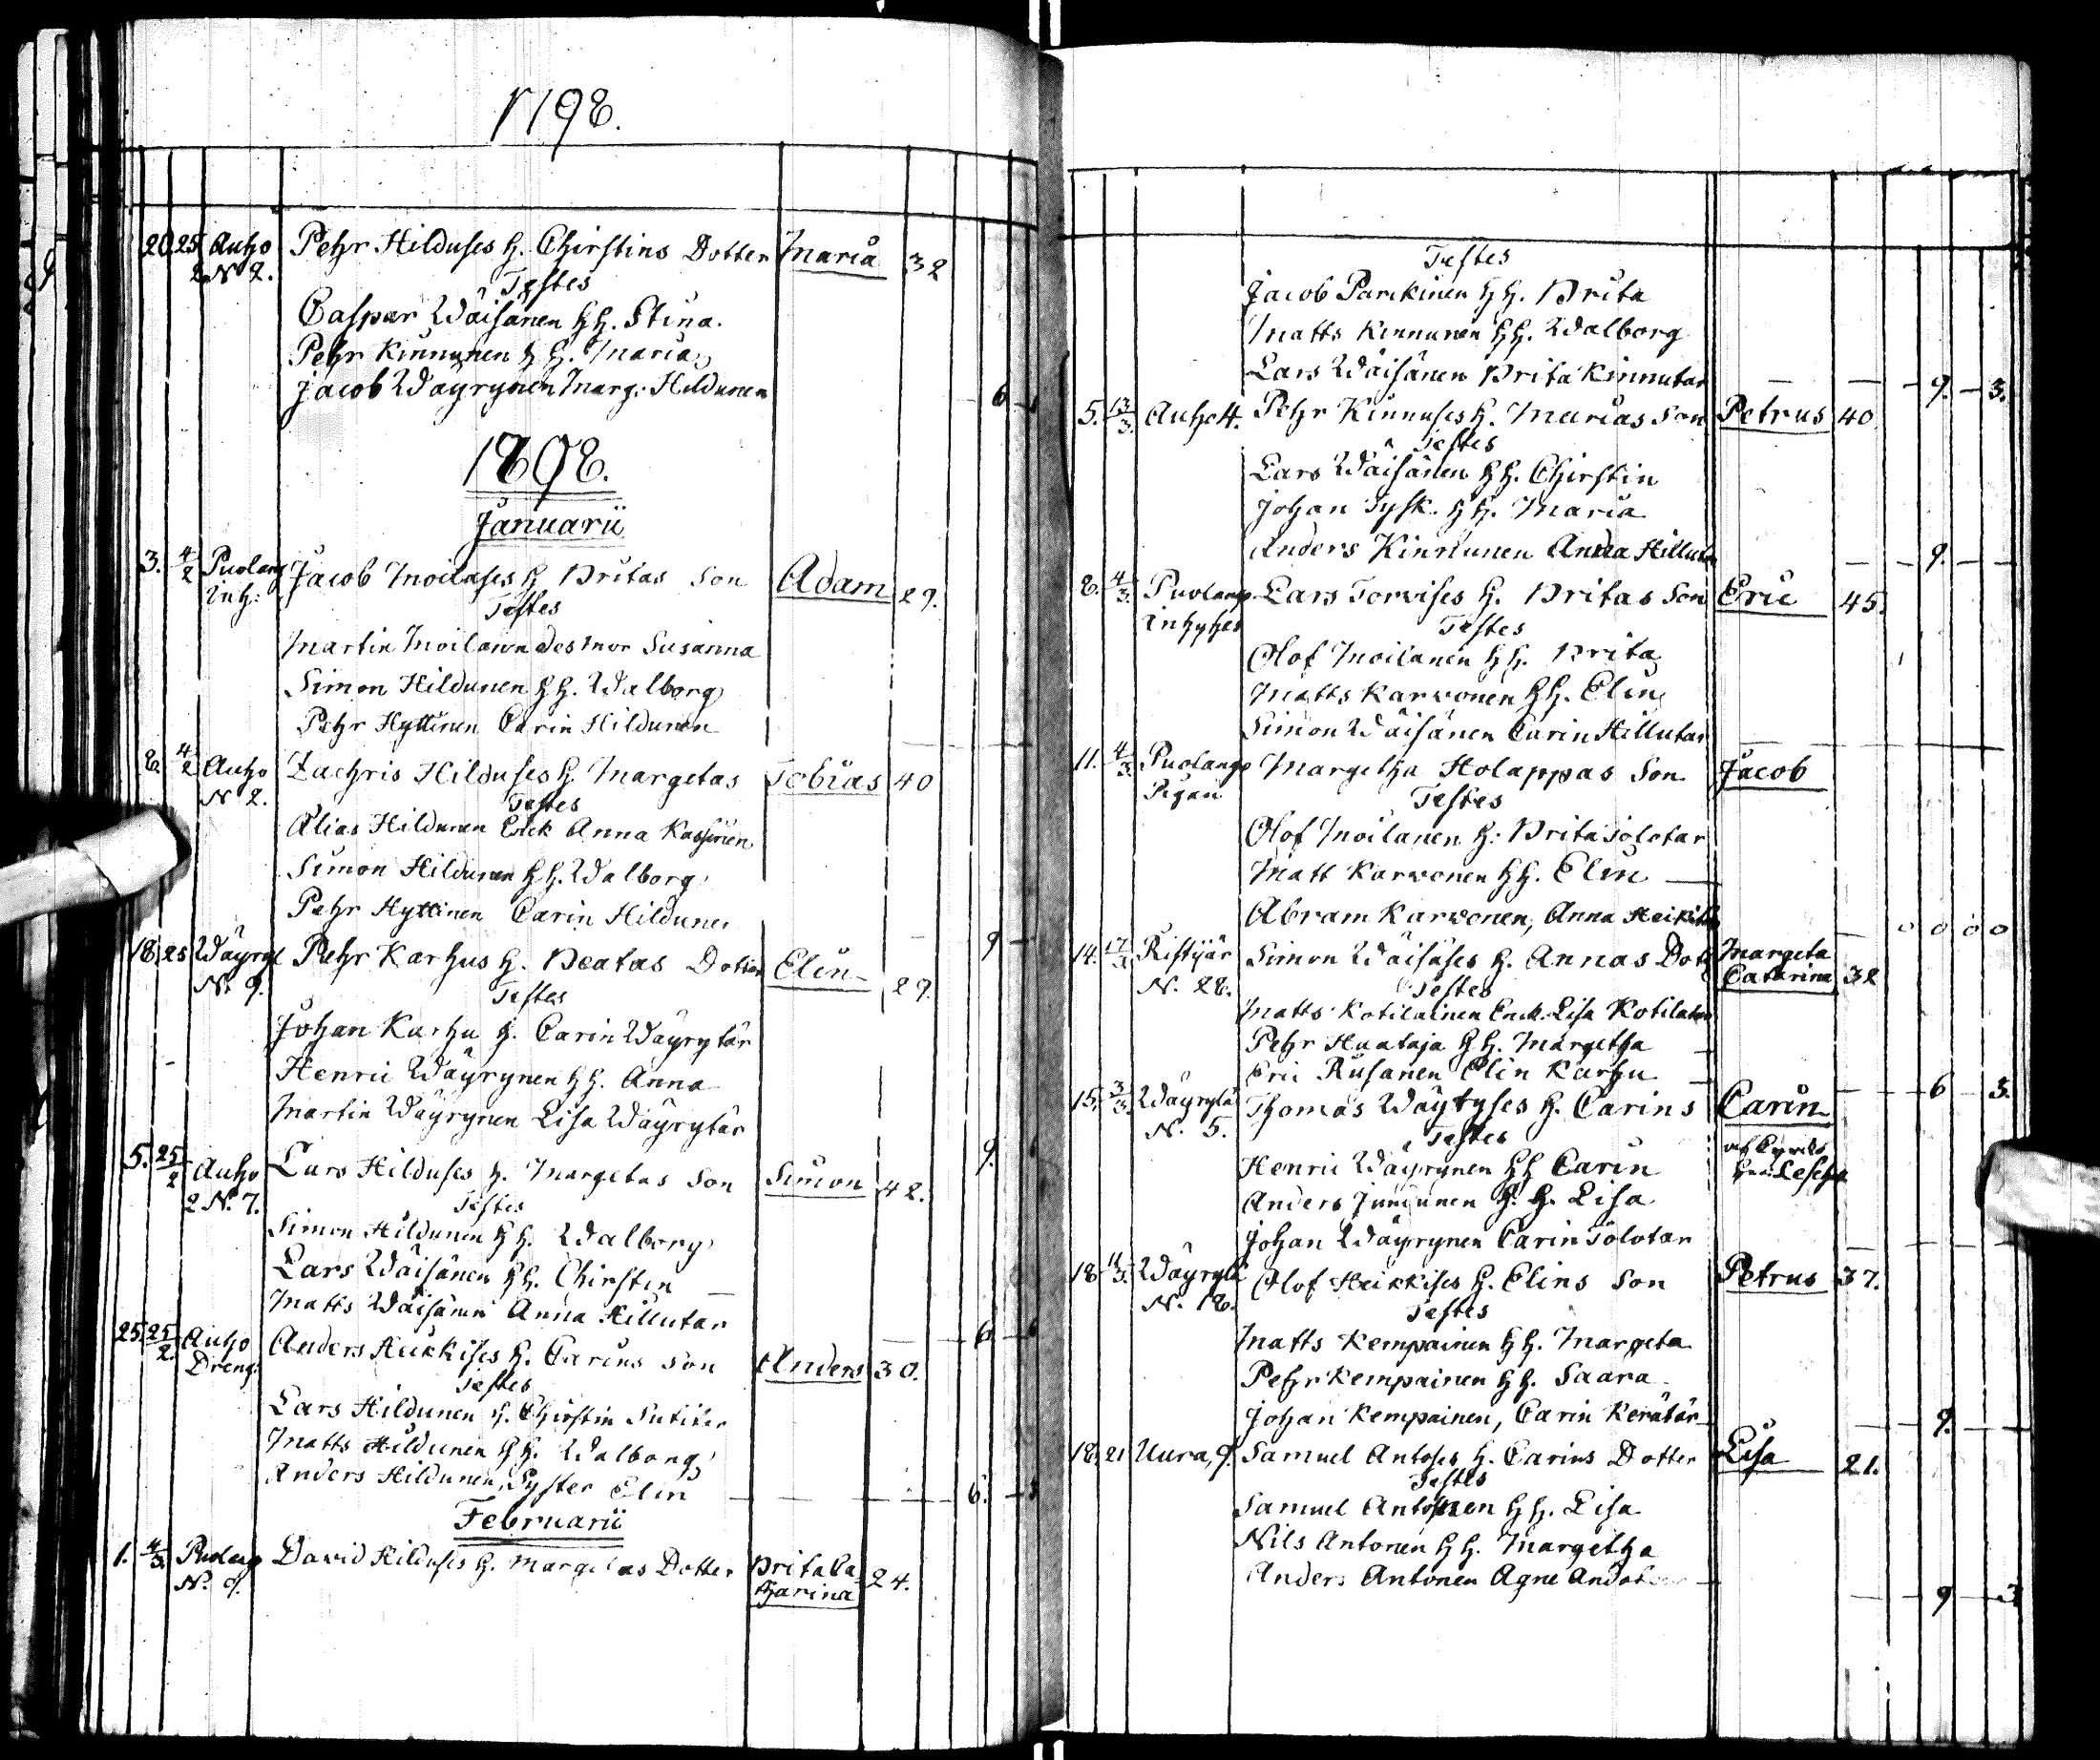 1798.
20 25/2 Auho N 2. Pehr Hilduses h. Chirstins Dotter Maria 32
Testes
Caspar Wäisänen h h. Stina.
Pehr Kinnunen h h. Maria
Jacob Wäyrynen Marg: Hildunen
6
1808.
Januarii
3. 4/2 Puolang Inh: Jacob Moilases h Britas Son Adam 29.
Testes
Martin Moilanen des mor Susanna
Simon Hildunen h h. Walborg
Pehr Hyttinen Carin Hildunen
8. 4/2 Auho N 2. Zachris Hilduses h Margetas Tobias 40
Testes
Elias Hildunen Enck Anna
Simon Hildunen h h. Walborg
Pehr Hyttinen Carin Hildunen
9
18. 25 Wäyryl N. 9. Pehr Karhus h. Beatas Dotter Elin 29.
Testes
Johan Karhu h. Carin Wäyrytär
Henric Wäyrynen h h. Anna
Martin Wäyrynen Lisa Wäyrytär
9.
5. 25/2 Auho N. 7. Lars Hilduses h. Margetas Son Simon 42.
Testes
Simon Hildunen h h. Walborg
Lars Wäisänen h h. Chirstin
Matts Wäisänen Anna Hillutar
6
25. 25/2. Auho Dreng: Anders Heikkises h. Carins Son Anders 30.
Testes
Lars Hildunen h. Chirstin
Matts Hildunen h h. Walborg
Anders Hildunen, Syster Elin
6.
Februarii
1. 4/3. N. David Hilduses h. Margetas Dotter Brita Ca-tharina 24.
Testes
Jacob Parkinen h h. Brita
Matts Kinnunen h h. Walborg
Lars Wäisänen Brita Kinnutar
9. 3.
5. 13/3. Auho 4. Pehr Kinnuses h. Marias Son Petrus 40
Testes
Lars Wäisänen h h. Chirstin
Johan Tysk. h h. Maria
Anders Kinnunen Anna Hillutar
9.
8. 4/3. Puolango Inhyses Lars Torvises h. Britas Son Eric 45.
Testes
Olof Moilanen h h. Brita
Matts Karvonen h h. Elin
Simon Wäisänen Carin Hillutar
11. 4/3. Puolango Pigan Margetha Holappas Son Jacob
Testes
Olof Moilanen h. Brita Tolotar
Matt Karvonen h h. Elin
Abram Karvonen, Anna
0 0 0 0
14. 17/3 Ristijär N. 28. Simon Wäisäses h. Annas Dott Margeta Catarina 32
Testes
Matts Kotilainen Enck. Lisa Kotilatar
Pehr Haataja h h. Margetha
Eric Rusanen Elin Karhu
6 3.
15. 3/3. Wäyrylä N. 5. Thomas Wäyryses h. Carins Carin
Testes
Henric Wäyrynen h h Carin
Anders Jununen h. h. Lisa
Johan Wäyrynen Carin Tolotar
18 11/3. Wäyrylä N. 18. Olof Heikkises h. Elins Son Petrus 37.
Testes
Matts Kempainen h h. Margeta
Pehr Kempainen h h. Saara
Johan Kempainen, Carin Kerätär
9.
18. 21 Uura, 9. Samuel Antoses h. Carins Dotter Lisa 21.
Testes
Samuel Antonen h h. Lisa
Nils Antonen h h. Margetha
Anders Antonen Agne
9 3